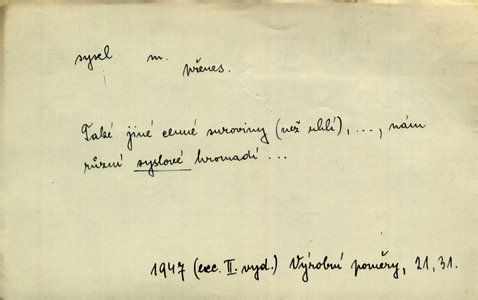 sysel m.
přenes.
Také jiné cenné suroviny (než uhlí), ..., nám
různí syslové hromadí ...
1947 (exc. II. vyd.) Výrobní poměry, 21, 31.